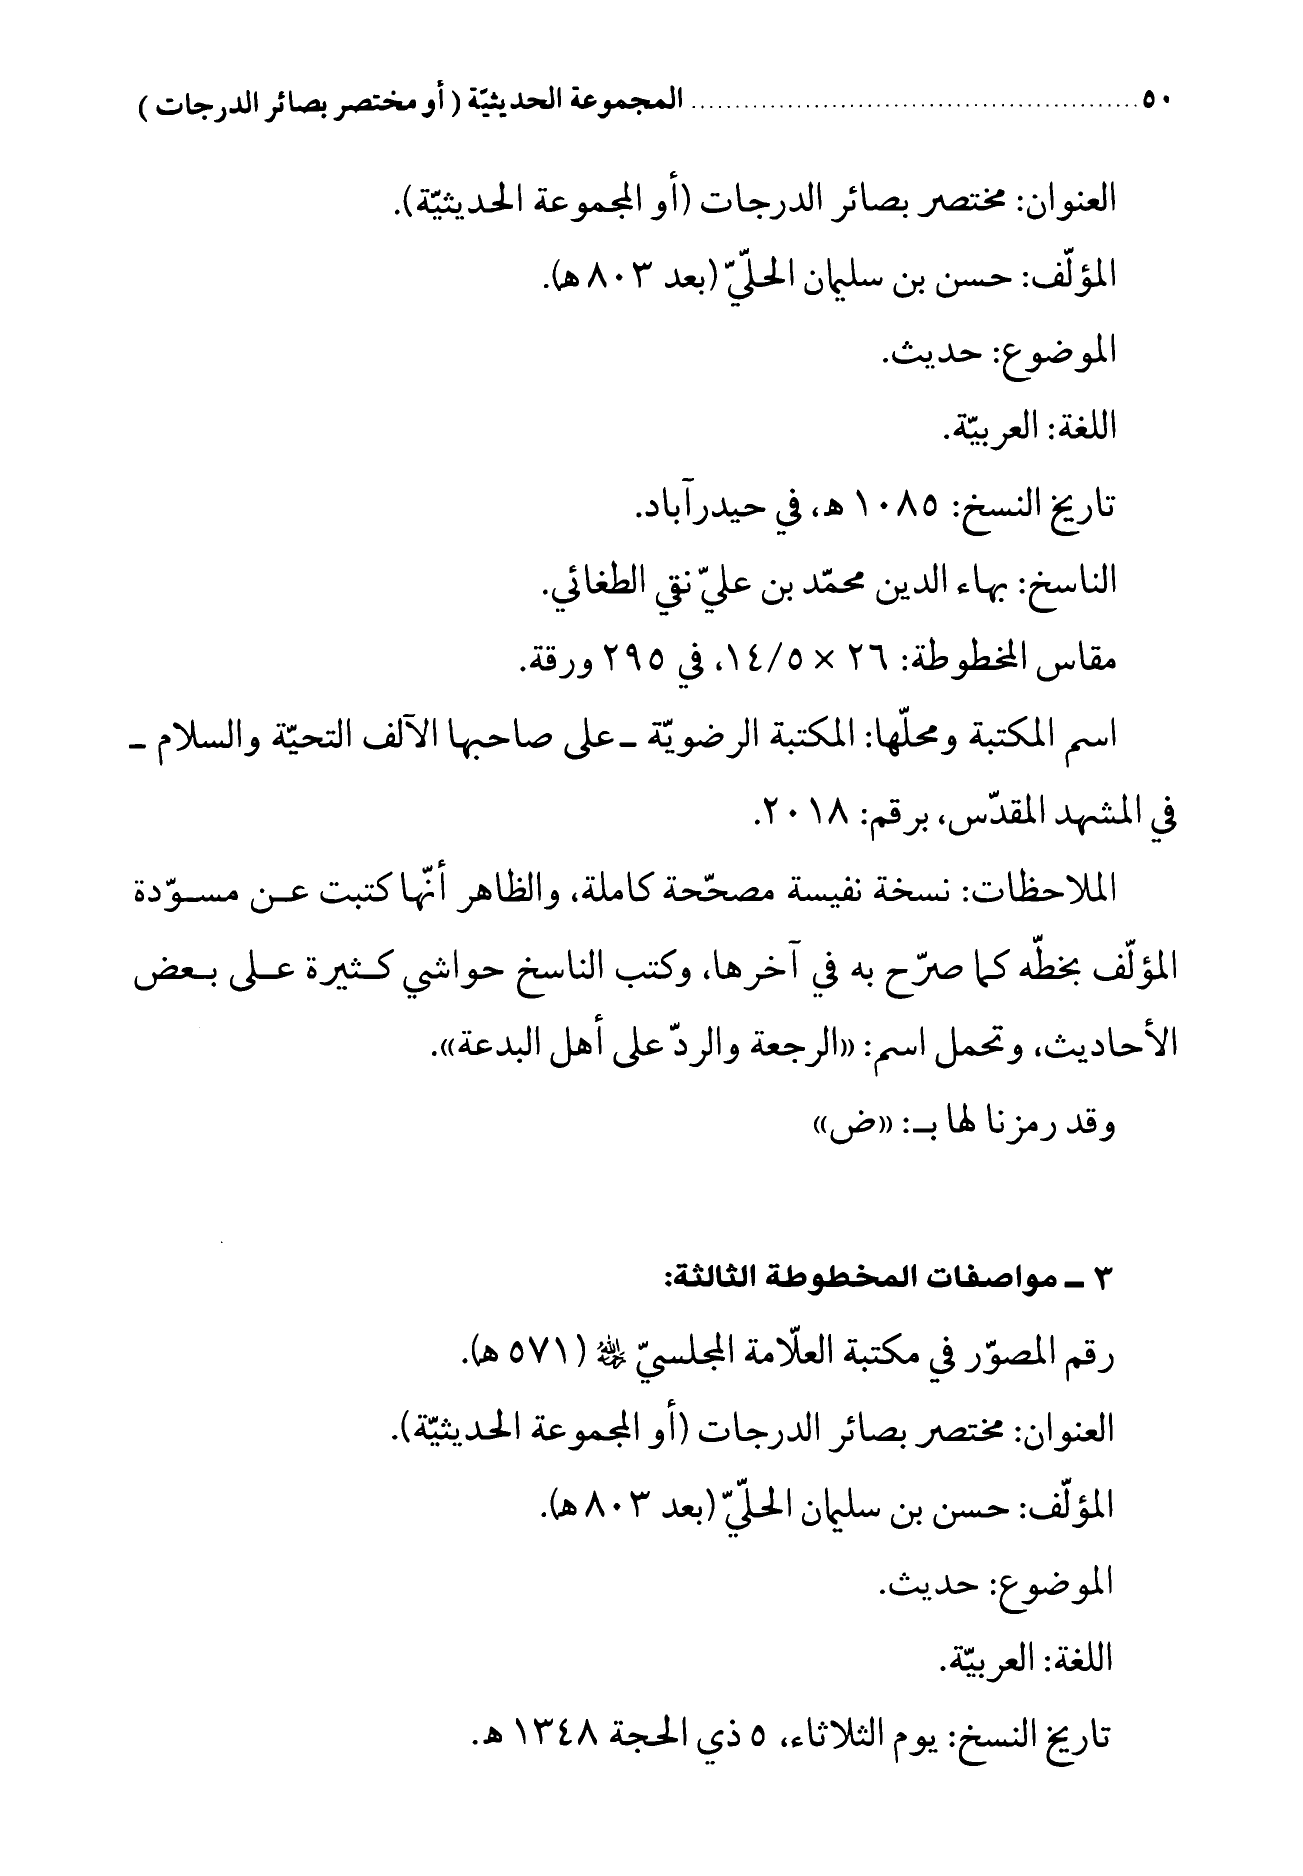 ٥٠ ........ المجموعة الحديثيّة ( أو مختصر بصائر الدرجات )
العنوان: مختصر بصائر الدرجات (أو المجموعة الحديثيّة).
المؤلّف: حسن بن سليمان الحلّيّ (بعد ٨٠٣ هـ).
الموضوع: حديث.
اللغة: العربيّة.
تاريخ النسخ: ١٠٨٥ هـ، في حيدرآباد.
الناسخ: بهاء الدين محمّد بن عليّ نقي الطغائي.
مقاس المخطوطة: ٢٦ × ١٤/٥، في ٢٩٥ ورقة.
اسم المكتبة ومحلّها: المكتبة الرضويّة ـ على صاحبها الآلف التحيّة والسلام ـ
في المشهد المقدّس، برقم: ٢٠١٨.
الملاحظات: نسخة نفيسة مصحّحة كاملة، والظاهر أنّها كتبت عن مسوّدة
المؤلّف بخطّه كما صرّح به في آخرها، وكتب الناسخ حواشي كثيرة على بعض
الأحاديث، وتحمل اسم: «الرجعة والردّ على أهل البدعة».
وقد رمزنا لها بـ: «ض»
٣ ـ مواصفات المخطوطة الثالثة:
رقم المصوّر في مكتبة العلّامة المجلسيّ ﷀ (٥٧١ هـ).
العنوان: مختصر بصائر الدرجات (أو المجموعة الحديثيّة).
المؤلّف: حسن بن سليمان الحلّيّ (بعد ٨٠٣ هـ).
الموضوع: حديث.
اللغة: العربيّة.
تاريخ النسخ: يوم الثلاثاء، ٥ ذي الحجة ١٣٤٨ هـ.